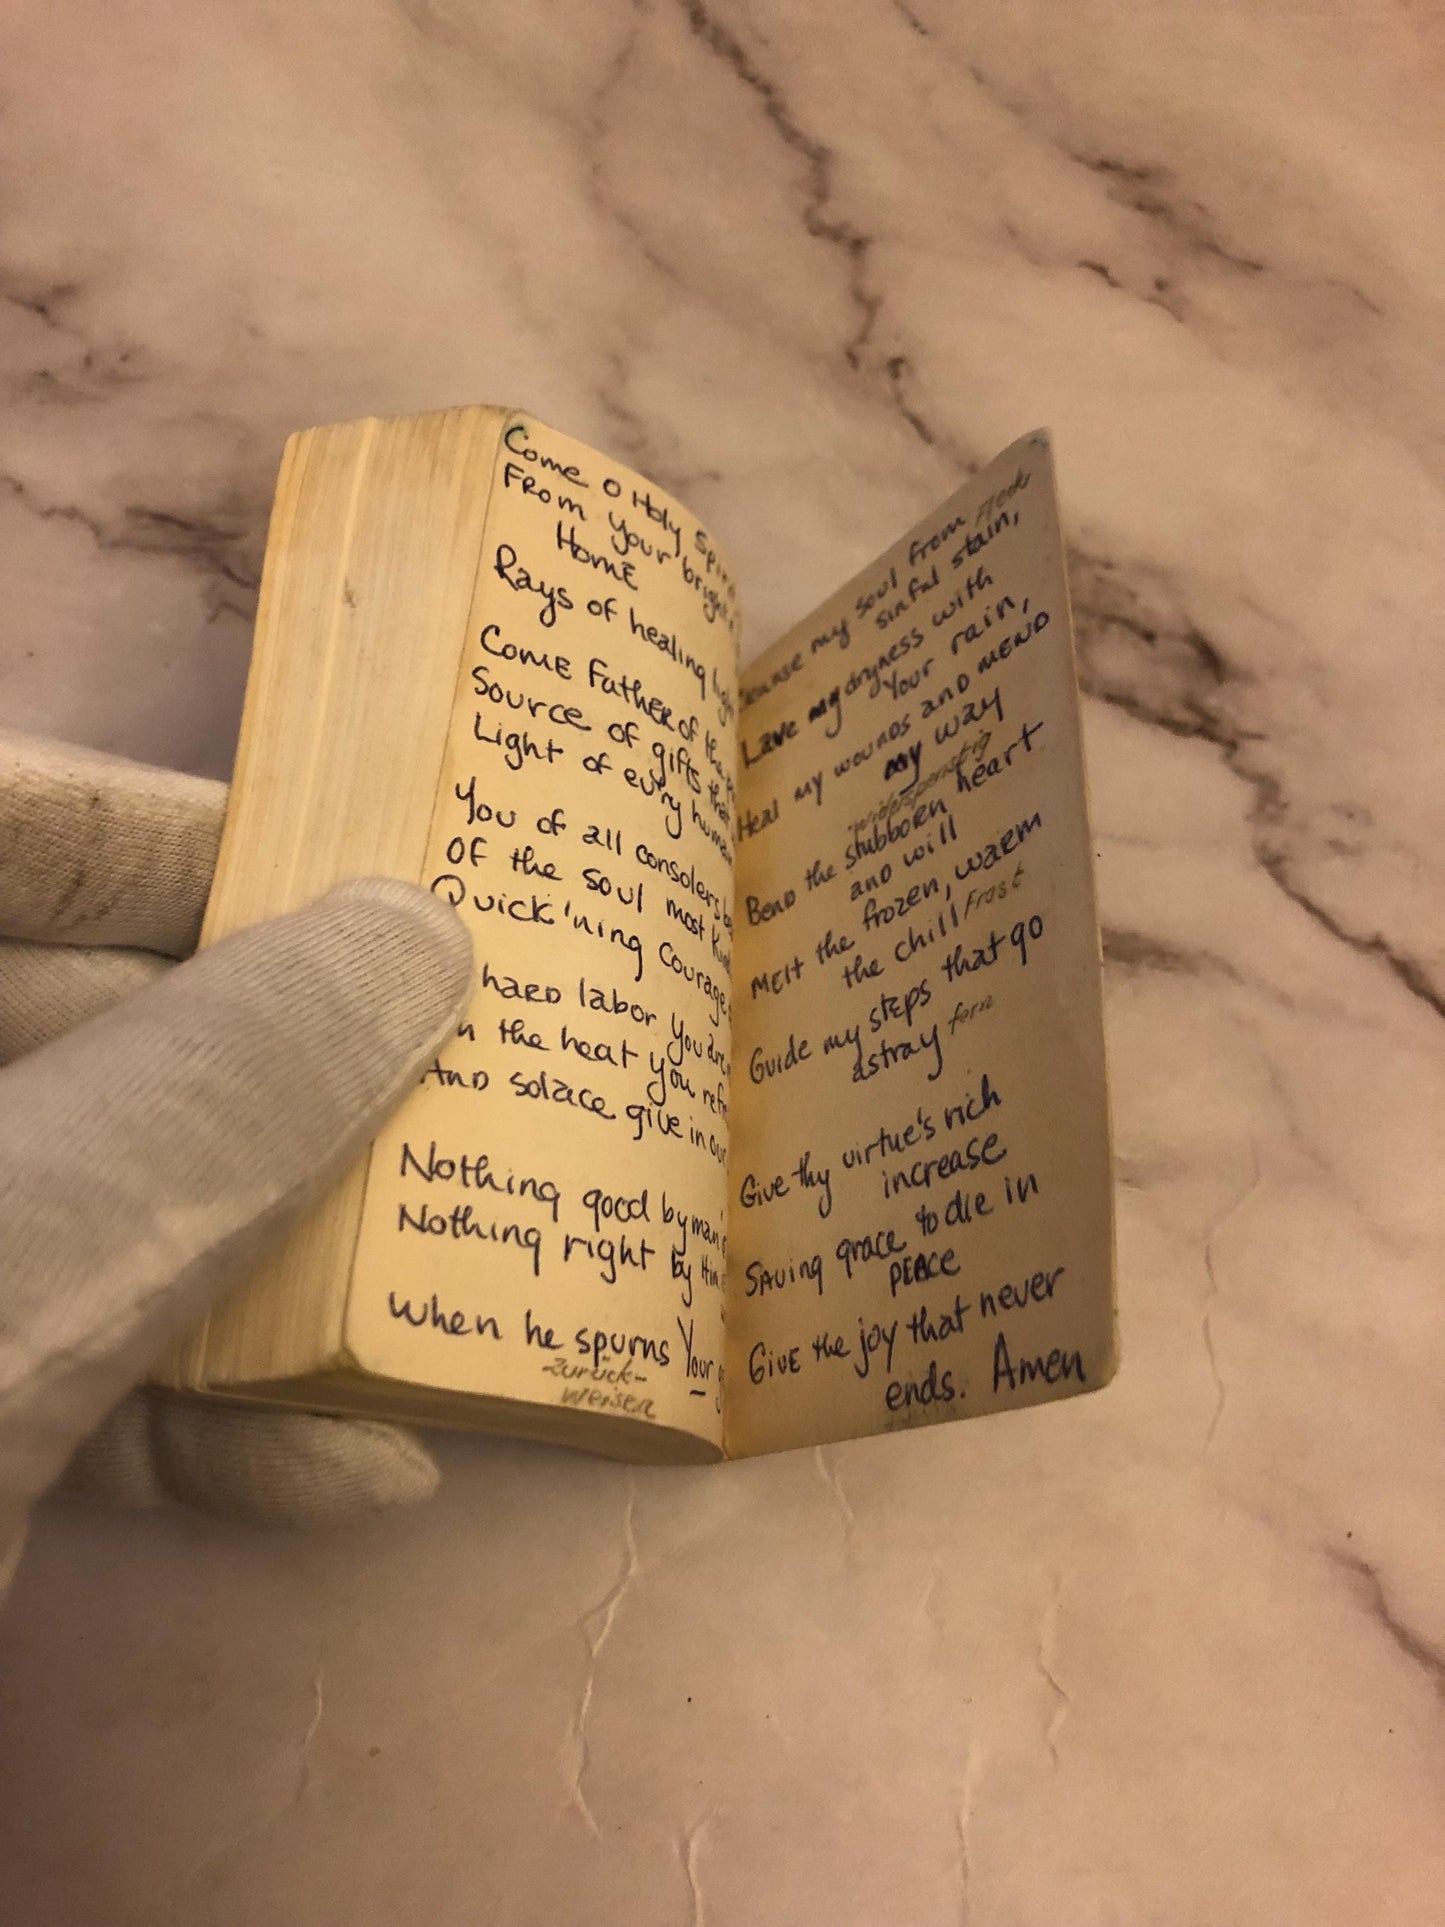 Come O Holy
From your bright
Home
Rays of healing
Come Father of
Source of gifts that
Light of every human
You of all consolers
Of the soul most
Quick'ning Courage
hard labor you are
the heat you
And solace give in our
Nothing good by man's
Nothing right by
When he spurns Your
zurück-
weisen
my soul from Fleck
sinful stain,
Lave my dryness with
Your rain,
Heal my wounds and mend
my way
widerspenstig
Bend the stubborn heart
and will
Melt the frozen, warm
the chill Frost
Guide my steps that go
astray fern
Give thy virtue's rich
increase
Saving grace to die in
peace
Give the joy that never
ends. Amen